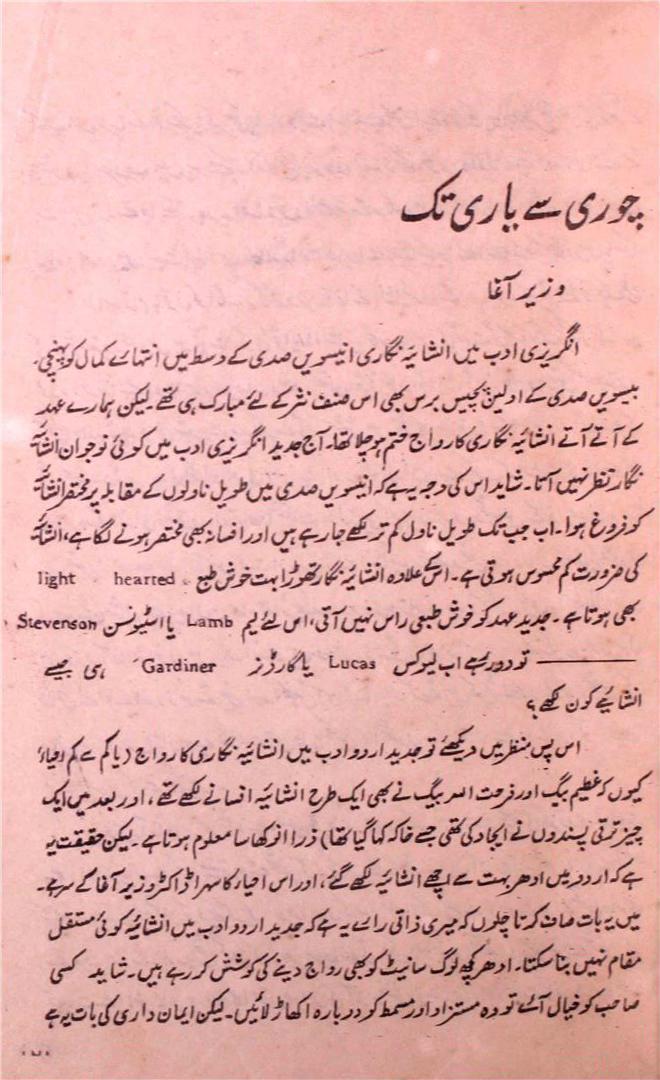 چوری سے یاری تک
وزیر آغا
انگریزی ادب میں انشائیہ نگاری انیسویں صدی کے وسط میں انتہائے کمال کو پہنچی۔
بیسویں صدی کے اولین پچیس برس بھی اس صنف نثر کے لئے مبارک ہی تھے۔ لیکن ہمارے عہد
کے آتے آتے انشائیہ نگاری کا رواج ختم ہو چلا تھا۔ آج جدید انگریزی ادب میں کوئی نوجوان انشائیہ
نگار نظر نہیں آتا۔ شاید اس کی وجہ یہ ہے کہ انیسویں صدی میں طویل ناولوں کے مقابلہ پر مختصر انشائیہ
کو فروغ ہوا۔ اب جب تک طویل ناول کم تر لکھے جا رہے ہیں اور افسانہ بھی مختصر ہونے لگا ہے، انشائیہ
کی ضرورت کم محسوس ہوتی ہے۔ اس کے علاوہ انشائیہ نگار تھوڑا بہت خوش طبع light hearted
بھی ہوتا ہے۔ جدید عہد کو خوش طبعی راس نہیں آتی، اس لئے لیم Lamb یا اسٹیونسن Stevenson
——— تو دور رہے اب لیوکس Lucas یا گارڈنر Gardiner ہی جیسے
انشائیے کون لکھے؟
اس پس منظر میں دیکھئے تو جدید اردو ادب میں انشائیہ نگاری کا رواج (یا کم سے کم احیاء
کیوں کہ عظیم بیگ اور فرحت اللہ بیگ نے بھی ایک طرح انشائیہ افسانے لکھے تھے، اور بعد میں ایک
چیز ترقی پسندوں نے ایجاد کی تھی جسے خاکہ کہا گیا تھا) ذرا انوکھا سا معلوم ہوتا ہے۔ لیکن حقیقت یہ
ہے کہ اردو میں ادھر بہت سے اچھے انشائیہ لکھے گئے، اور اس احیاء کا سہرا ڈاکٹر وزیر آغا کے سر ہے۔
میں یہ بات صاف کرتا چلوں کہ میری ذاتی رائے یہ ہے کہ جدید اردو ادب میں انشائیہ کوئی مستقل
مقام نہیں بنا سکتا۔ ادھر کچھ لوگ سانیٹ کو بھی رواج دینے کی کوشش کر رہے ہیں۔ شاید کسی
صاحب کو خیال آئے تو وہ مستزاد اور مسمط کو دوبارہ اکھاڑ لائیں۔ لیکن ایمان داری کی بات یہ ہے